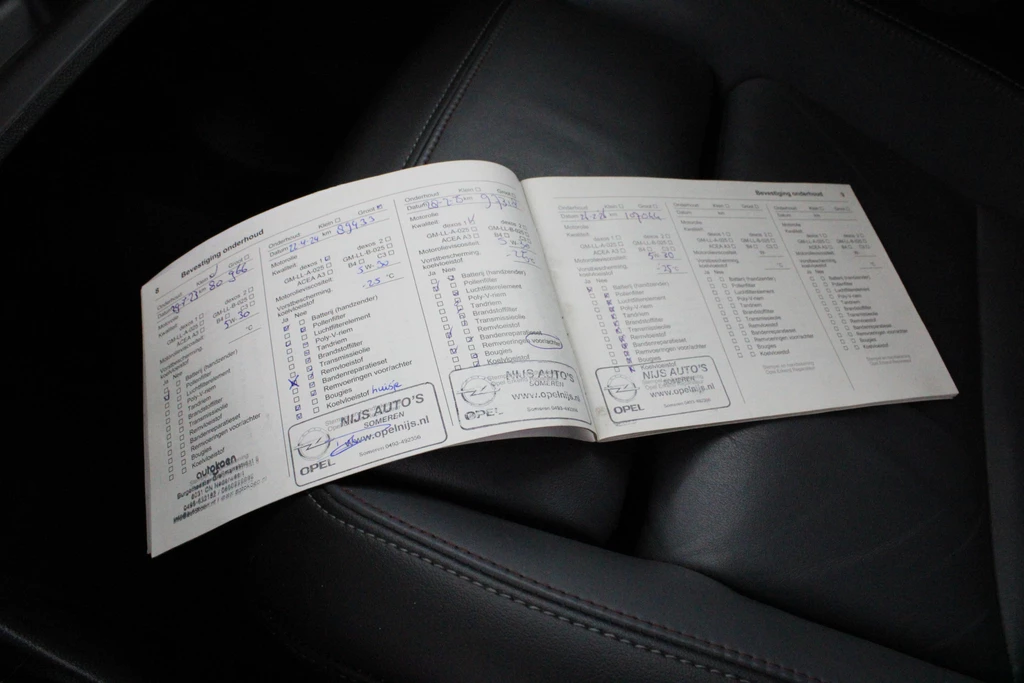 8
Bevestiging onderhoud
Onderhoud Klein Groot
Datum km 80.966
Motorolie
Kwaliteit: dexos 1 dexos 2
GM-LL-A-025 GM-LL-B-025
ACEA A3 B4 C3
Motorolieviscositeit: 5w.30
Vorstbescherming °C
Ja Nee
Batterij (handzender)
Pollenfilter
Luchtfilterelement
Poly-V-riem
Tandriem
Brandstoffilter
Transmissieolie
Remvloeistof
Bandenreparatieset
Remvoeringen voor/achter
Bougies
Koelvloeistof
autokoen
Onderhoud Klein Groot
Datum 22.4.24 km 89433
Motorolie
Kwaliteit: dexos 1 dexos 2
GM-LL-A-025 GM-LL-B-025
ACEA A3 B4 C3
Motorolieviscositeit: 5w.30
Vorstbescherming koelvloeistof -25 °C
Ja Nee
Batterij (handzender)
Pollenfilter
Luchtfilterelement
Poly-V-riem
Tandriem
Brandstoffilter
Transmissieolie
Remvloeistof
Bandenreparatieset
Remvoeringen voor/achter
Bougies
Koelvloeistof huisje
NIJS AUTO'S
SOMEREN
www.opelnijs.nl
Telefoon 0493-492336
OPEL
Onderhoud Klein Groot
Datum km
Motorolie
Kwaliteit: dexos 1 dexos 2
GM-LL-A-025 GM-LL-B-025
ACEA A3 B4 C3
Motorolieviscositeit: 5w30
Vorstbescherming koelvloeistof -25°C
Ja Nee
Batterij (handzender)
Pollenfilter
Luchtfilterelement
Poly-V-riem
Tandriem
Brandstoffilter
Transmissieolie
Remvloeistof
Bandenreparatieset
Remvoeringen voor/achter
Bougies
Koelvloeistof
NIJS AUTO'S
SOMEREN
www.opelnijs.nl
OPEL
Bevestiging onderhoud 9
Onderhoud Klein Groot
Datum km 107064
Motorolie
Kwaliteit:
dexos 1 dexos 2
GM-LL-A-025 GM-LL-B-025
ACEA A3 B4 C3
Motorolieviscositeit 5w30
Vorstbescherming koelvloeistof -25°C
Ja Nee
Batterij (handzender)
Pollenfilter
Luchtfilterelement
Poly-V-riem
Tandriem
Brandstoffilter
Transmissieolie
Remvloeistof
Bandenreparatieset
Remvoeringen voor/achter
Bougies
Koelvloeistof
NIJS AUTO'S
SOMEREN
www.opelnijs.nl
OPEL
Onderhoud Klein Groot
Datum km
Motorolie
Kwaliteit:
dexos 1 dexos 2
GM-LL-A-025 GM-LL-B-025
ACEA A3 B4 C3
Motorolieviscositeit
Vorstbescherming koelvloeistof °C
Ja Nee
Batterij (handzender)
Pollenfilter
Luchtfilterelement
Poly-V-riem
Tandriem
Brandstoffilter
Transmissieolie
Remvloeistof
Bandenreparatieset
Remvoeringen voor/achter
Bougies
Koelvloeistof
Onderhoud Klein Groot
Datum km
Motorolie
Kwaliteit:
dexos 1 dexos 2
GM-LL-A-025 GM-LL-B-025
ACEA A3 B4 C3
Motorolieviscositeit
Vorstbescherming koelvloeistof °C
Ja Nee
Batterij (handzender)
Pollenfilter
Luchtfilterelement
Poly-V-riem
Tandriem
Brandstoffilter
Transmissieolie
Remvloeistof
Bandenreparatieset
Remvoeringen voor/achter
Bougies
Koelvloeistof